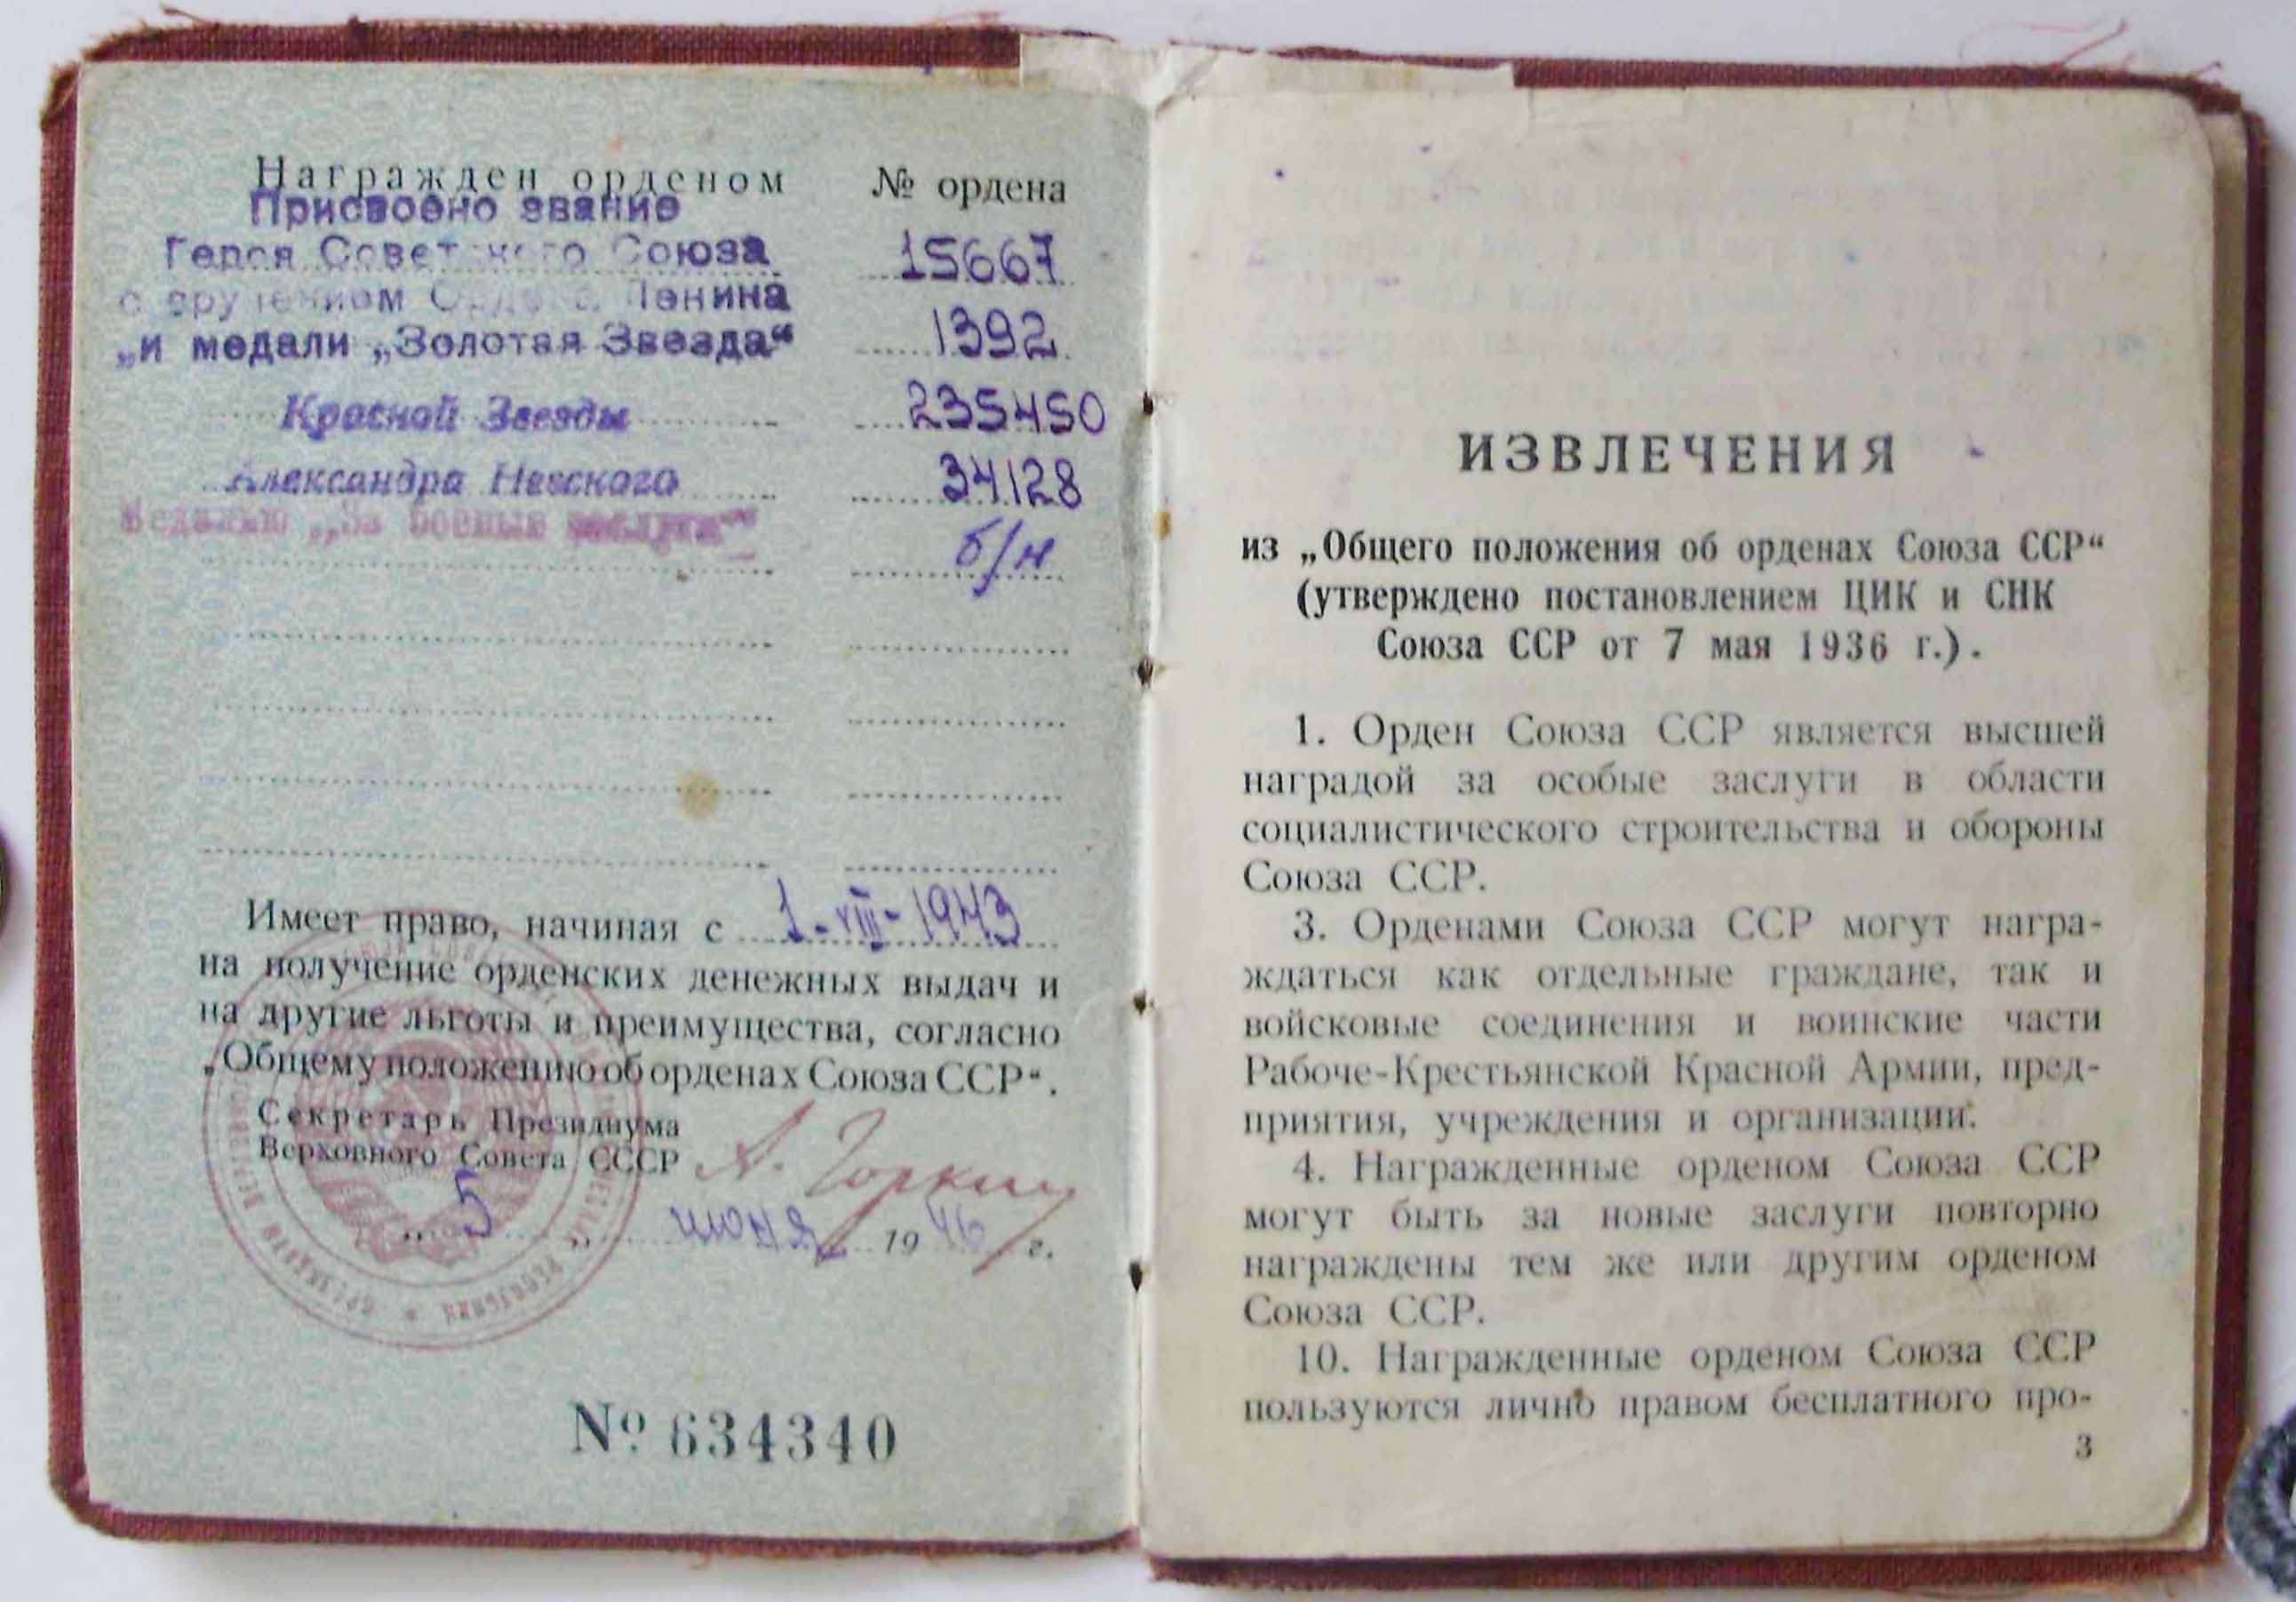 Награжден орденом № ордена
Присвоено звание
Героя Советского Союза 15667
с вручением Ордена Ленина
„и медали „Золотая Звезда“ 1392
Красной Звезды 235450
Александра Невского 34128
Медалью „За боевые заслуги“ б/н
Имеет право, начиная с 1-VIII-1943
на получение орденских денежных выдач и
на другие льготы и преимущества, согласно
„Общему положению об орденах Союза ССР“.
Секретарь Президиума
Верховного Совета СССР А. Горкин
„5„ июня 1946 г.
№ 634340
ИЗВЛЕЧЕНИЯ
из „Общего положения об орденах Союза ССР“
(утверждено постановлением ЦИК и СНК
Союза ССР от 7 мая 1936 г.).
1. Орден Союза ССР является высшей
наградой за особые заслуги в области
социалистического строительства и обороны
Союза ССР.
3. Орденами Союза ССР могут награ-
ждаться как отдельные граждане, так и
войсковые соединения и воинские части
Рабоче-Крестьянской Красной Армии, пред-
приятия, учреждения и организации.
4. Награжденные орденом Союза ССР
могут быть за новые заслуги повторно
награждены тем же или другим орденом
Союза ССР.
10. Награжденные орденом Союза ССР
пользуются лично правом бесплатного про-
3